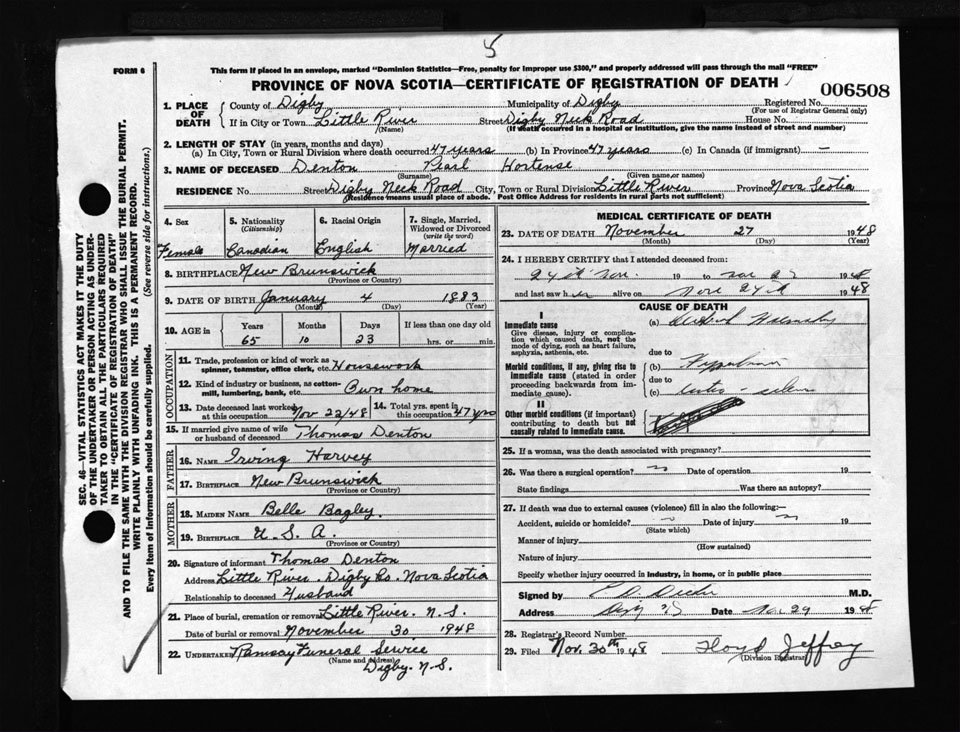 5
FORM 6
This form if placed in an envelope, marked "Dominion Statistics—Free, penalty for improper use $300," and properly addressed will pass through the mail "FREE"
PROVINCE OF NOVA SCOTIA—CERTIFICATE OF REGISTRATION OF DEATH
006508
SEC. 46—VITAL STATISTICS ACT MAKES IT THE DUTY
OF THE UNDERTAKER OR PERSON ACTING AS UNDER-
TAKER TO OBTAIN ALL THE PARTICULARS REQUIRED
IN THE "CERTIFICATE OF REGISTRATION OF DEATH"
AND TO FILE THE SAME WITH THE DIVISION REGISTRAR WHO SHALL ISSUE THE BURIAL PERMIT.
WRITE PLAINLY WITH UNFADING INK. THIS IS A PERMANENT RECORD.
Every item of information should be carefully supplied. (See reverse side for instructions.)
1. PLACE OF DEATH
County of Digby Municipality of Digby Registered No.
(For use of Registrar General only)
If in City or Town Little River Street Digby Neck Road House No.
(Name) (If death occurred in a hospital or institution, give the name instead of street and number)
2. LENGTH OF STAY (in years, months and days)
(a) In City, Town or Rural Division where death occurred 47 years (b) In Province 47 years (c) In Canada (if immigrant) —
3. NAME OF DECEASED Denton Pearl Hortense
(Surname) (Given name or names)
RESIDENCE No Street Digby Neck Road City, Town or Rural Division Little River Province Nova Scotia
(Residence means usual place of abode. Post Office Address for residents in rural parts not sufficient)
4. Sex 5. Nationality (Citizenship) 6. Racial Origin 7. Single, Married, Widowed or Divorced (write the word)
Female Canadian English Married
8. BIRTHPLACE New Brunswick
(Province or Country)
9. DATE OF BIRTH January 4 1883
(Month) (Day) (Year)
10. AGE in Years Months Days If less than one day old
65 10 23 hrs. or min.
OCCUPATION
11. Trade, profession or kind of work as spinner, teamster, office clerk, etc. Housework
12. Kind of industry or business, as cotton-mill, lumbering, bank, etc. Own home
13. Date deceased last worked at this occupation Nov 22/48 14. Total yrs. spent in this occupation 47 yrs
15. If married give name of wife or husband of deceased Thomas Denton
FATHER
16. NAME Irving Harvey
17. BIRTHPLACE New Brunswick
(Province or Country)
MOTHER
18. MAIDEN NAME Belle Bagley.
19. BIRTHPLACE U. S. A.
(Province or Country)
20. Signature of informant Thomas Denton
Address Little River. Digby Co. Nova Scotia
Relationship to deceased Husband
21. Place of burial, cremation or removal Little River. N. S.
Date of burial or removal November 30 1948
22. UNDERTAKER Ramsay Funeral Service
(Name and address) Digby. N. S.
MEDICAL CERTIFICATE OF DEATH
23. DATE OF DEATH November 27 1948
(Month) (Day) (Year)
24. I HEREBY CERTIFY that I attended deceased from:
19 to 1948
and last saw her alive on 1948
CAUSE OF DEATH
I
Immediate cause
Give disease, injury or complication which caused death, not the mode of dying, such as heart failure, asphyxia, asthenia, etc.
(a)
due to
Morbid conditions, if any, giving rise to immediate cause (stated in order proceeding backwards from immediate cause).
(b)
due to
(c)
II
Other morbid conditions (if important) contributing to death but not causally related to immediate cause.
25. If a woman, was the death associated with pregnancy?
26. Was there a surgical operation? no Date of operation 19
State findings Was there an autopsy?
27. If death was due to external causes (violence) fill in also the following:—
Accident, suicide or homicide? Date of injury 19
(State which)
Manner of injury
(How sustained)
Nature of injury
Specify whether injury occurred in industry, in home, or in public place
Signed by M.D.
Address Date Nov 29 1948
28. Registrar's Record Number
29. Filed Nov. 30th 1948 Floyd Jeffrey
(Division Registrar)